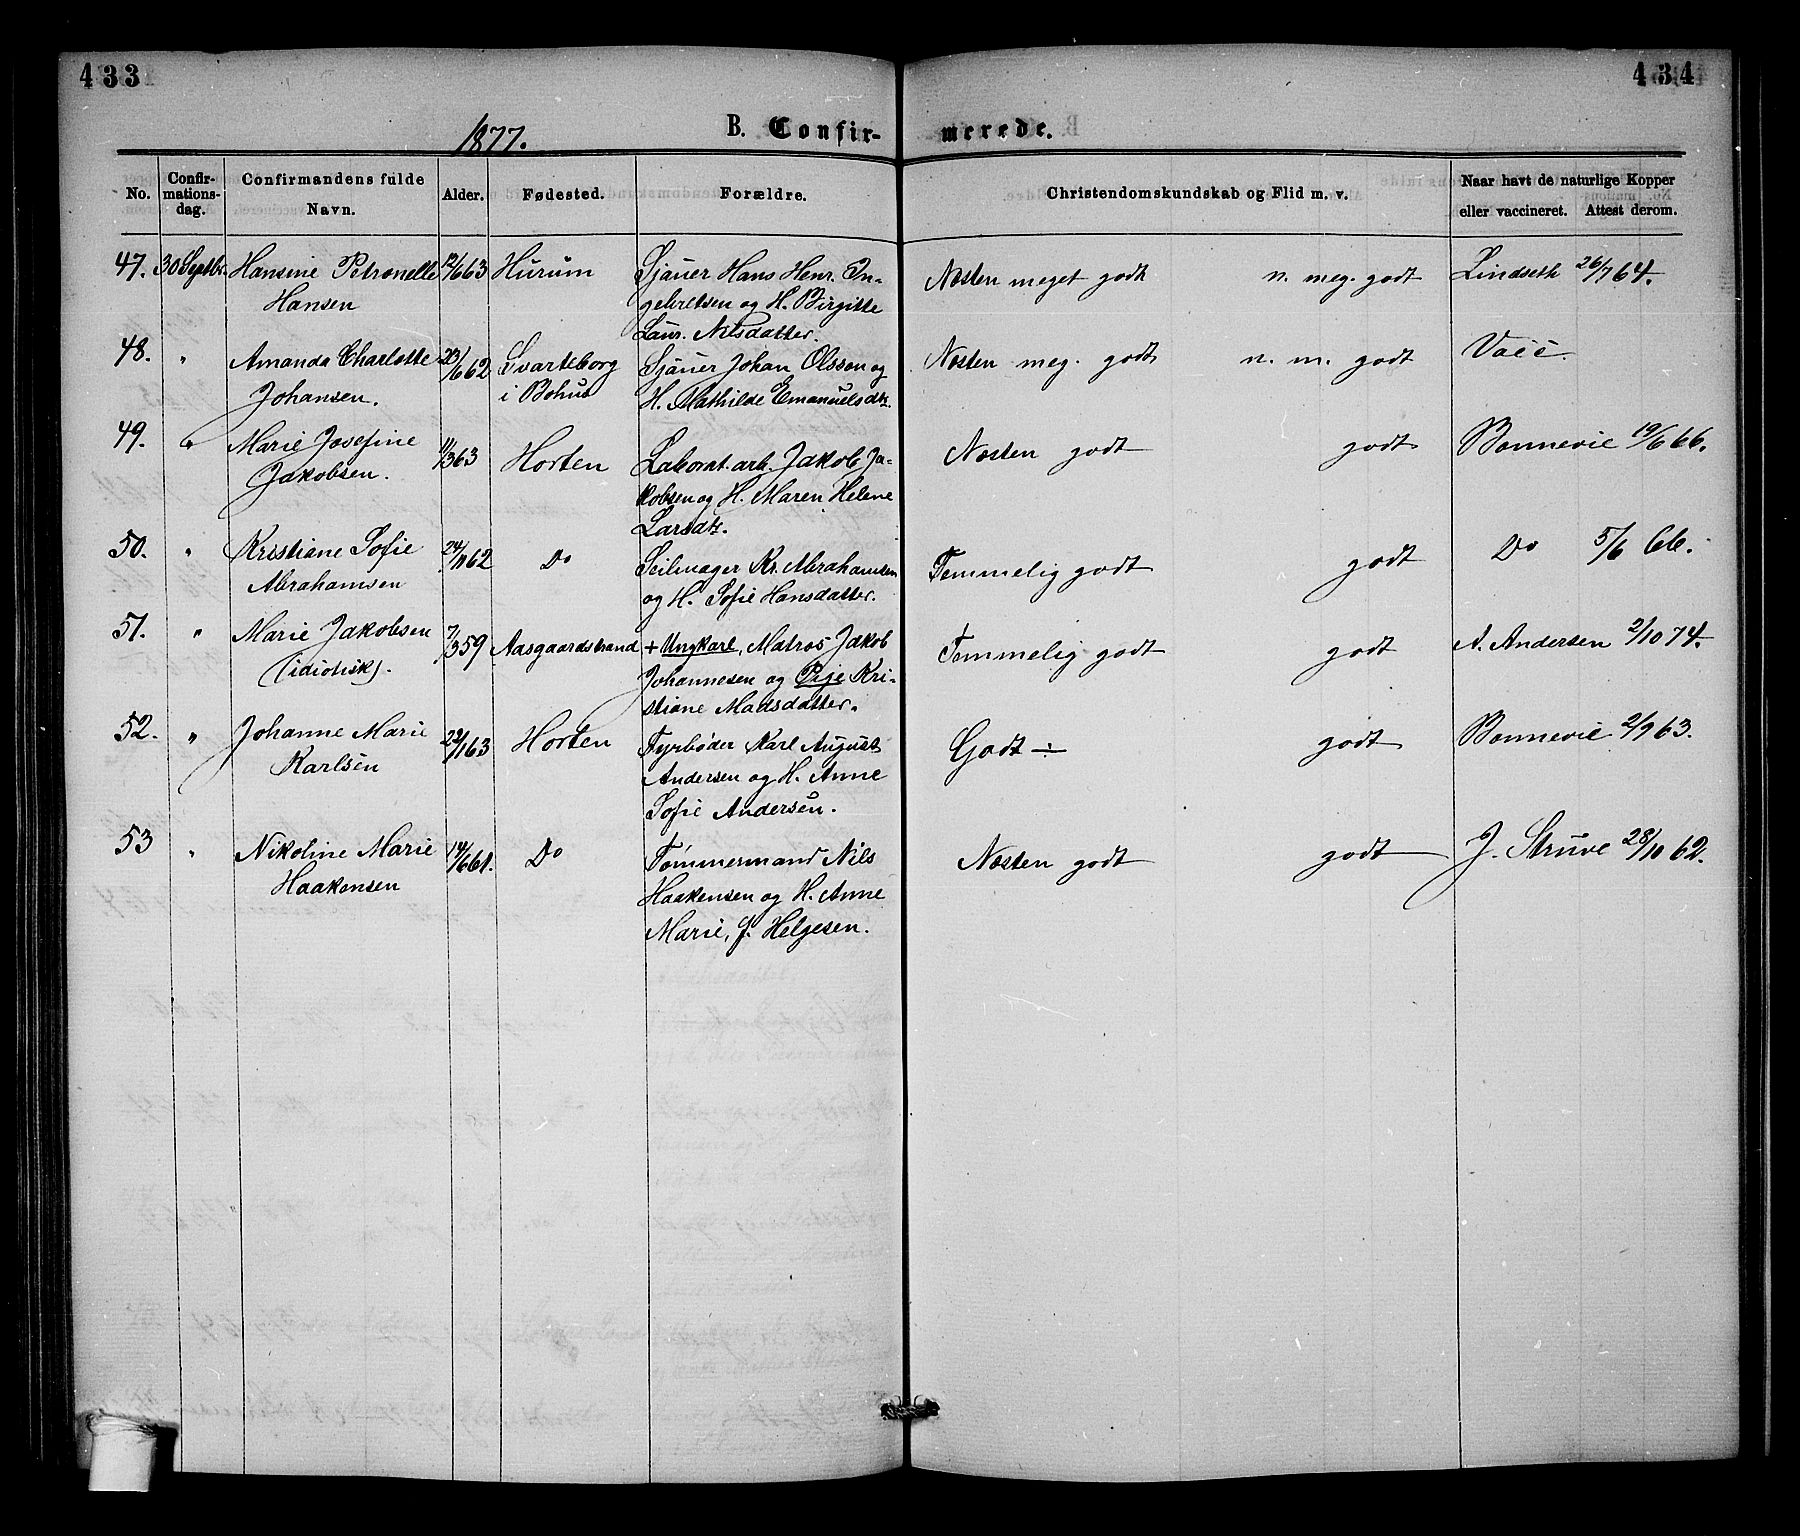 433
434
1877.
B. Confir-
merede.
No.
Confir-
mations-
dag.
Confirmandens fulde
Navn.
Alder.
Fødested.
Forældre.
Christendomskundskab og Flid m. v.
Naar havt de naturlige Kopper
eller vaccineret. Attest derom.
47. 30 Septbr. Hansine Petronelle 12/6 63 Hurum Sjauer Hans Henr. In- Næsten meget godt n. meg. godt Lindseth 26/7 64.
Hansen gebretsen og H. Birgitte
Laur. Nilsdatter.
48. " Amanda Charlotte 23/6 62 Svarteborg Sjauer Johan Olsson og Næsten meg. godt n. m. godt Vacc
Johansen. i Bohus H. Mathilde Emanuelsdtr.
49. " Marie Josefine 11/3 63 Horten Laborat. arb. Jakob Ja- Næsten godt godt Bonnevie 19/6 66.
Jakobsen. kobsen og H. Maren Helene
Larsdtr.
50. " Kristiane Sofie 24/11 62 Do Seilmager Kr. Abrahamsen Temmelig godt godt Do 5/6 66.
Abrahamsen og H. Sofie Hansdatter.
51. " Marie Jakobsen 7/3 59 Aasgaardstrand + Ungkarl, Matros Jakob Temmelig godt godt A. Andersen 2/10 74.
(idiotisk). Johannesen og Pige Kri-
stiane Madsdatter.
52. " Johanne Marie 22/1 63 Horten Fyrbøder Karl August Godt ÷ godt Bonnevie 2/9 63.
Karlsen Andersen og H. Anne
Sofie Andersen.
53 " Nikoline Marie 14/6 61. Do Tømmermand Nils Næsten godt godt J. Struve 28/10 62.
Haakensen Haakensen og H. Anne
Marie, f. Helgesen.